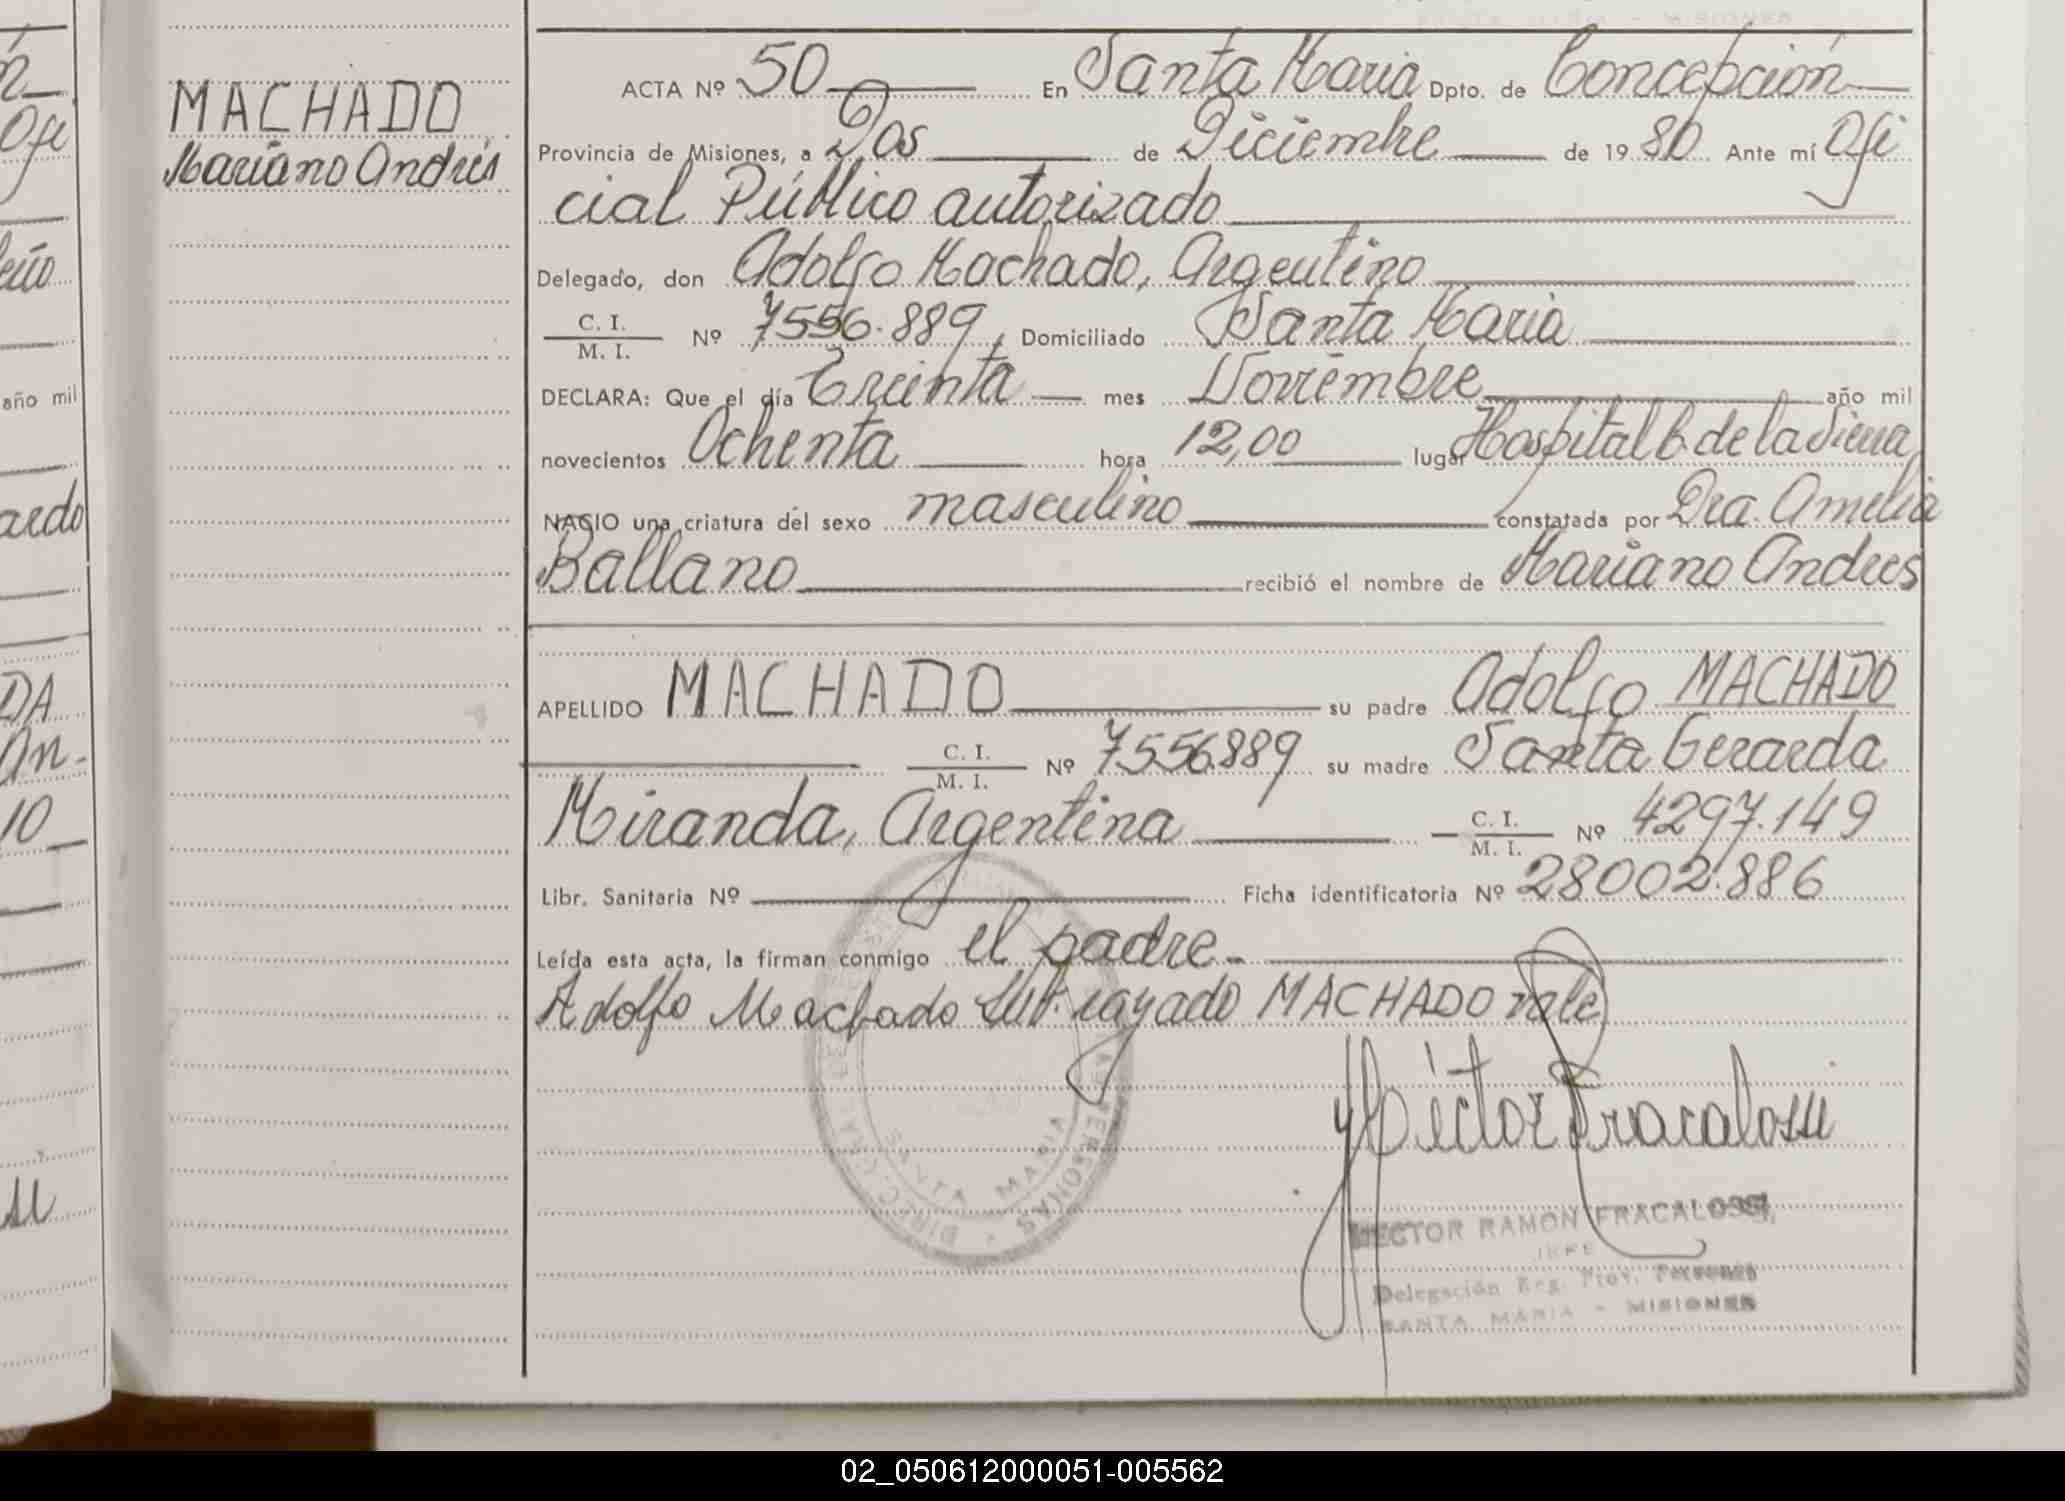 MACHADO
Mariano Andrés
ACTA Nº 50 En Santa Maria Dpto. de Concepción
Provincia de Misiones, a Dos de Diciembre de 1980 Ante mí Ofi
cial Público autorizado
Delegado, don Adolfo Machado, Argentino
C. I.
M. I. Nº 7556.889, Domiciliado Santa Maria
DECLARA: Que el día Treinta mes Noviembre año mil
novecientos Ochenta hora 12,00 lugar Hospital C. de la Sierra
NACIO una criatura del sexo masculino constatada por Dra. Amelia
Ballano recibió el nombre de Mariano Andres
APELLIDO MACHADO su padre Adolfo MACHADO
C. I.
M. I. Nº 7556889 su madre Santa Gerarda
Miranda, Argentina C. I.
M. I. Nº 4297.149
Libr. Sanitaria Nº Ficha identificatoria Nº 28002.886
Leída esta acta, la firman conmigo el padre.-
Adolfo Machado Sub-rayado MACHADO vale
Héctor Fracalossi
DIREC. GRAL. DE PERSONAS
SANTA MARIA
HECTOR RAMON FRACALOSSI
JEFE
Delegación Reg. Prov. Personas
SANTA MARIA - MISIONES
año mil
ardo
DA
An-
10
02_050612000051-005562